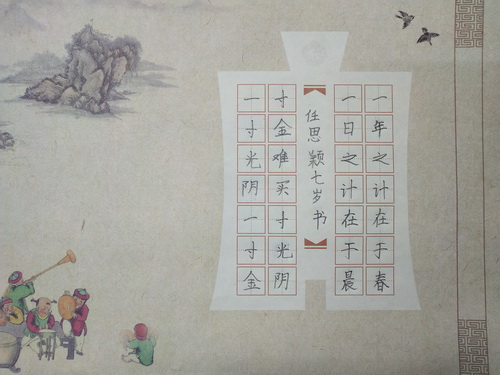 一年之计在于春
一日之计在于晨
任思颖七岁书
寸金难买寸光阴
一寸光阴一寸金